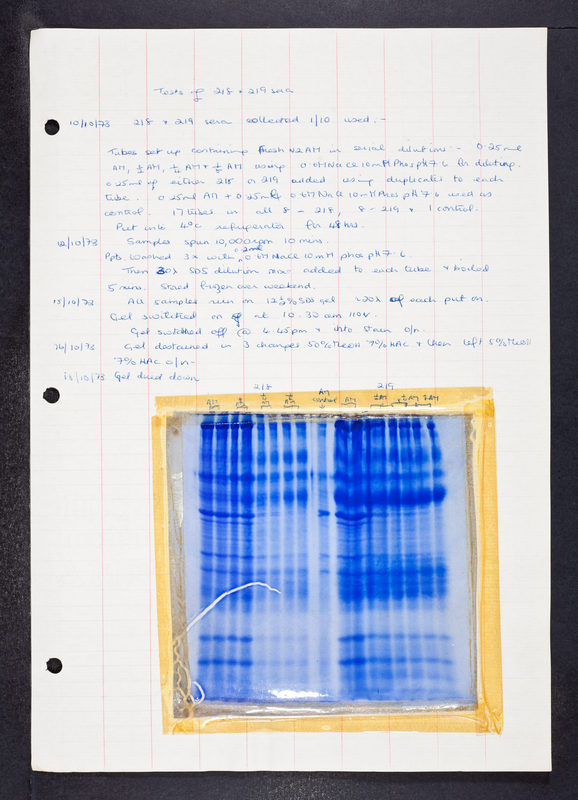 Tests of 218 + 219 sera
10/10/73 218 + 219 sera collected 1/10 used:-
Tubes set up containing fresh N2 AM in serial dilutions:- 0.25ml
AM, ½ AM, ¼ AM + ⅛ AM using 0.6M NaCl 10mM Phos pH 7.6 for diluting.
0.25ml of either 218 or 219 added using duplicates to each
tube. 0.25ml AM + 0.25ml 0.6M NaCl 10mM Phos pH 7.6 used as
control. 17 tubes in all 8 - 218, 8 - 219 + 1 control.
Put into 4°c refrigerator for 48 hrs.
12/10/73 Samples spun 10,000 rpm 10 mins.
Ppts washed 3x with 0.2ml 0.6M NaCl 10mM phos pH 7.6.
Then 30λ SDS dilution mix added to each tube + boiled
5 mins. Stored frozen over weekend.
15/10/73 All samples run on 12½% SDS gel 20λ of each put on.
Gel switched on at 10.30 am 110V.
Gel switched off @ 4.45pm + into stain o/n.
16/10/73 Gel destained in 3 changes 50% MeOH 7% HAC + then left 5% MeOH
7% HAC o/n-
18/10/73 Gel dried down
218 219
AM ½ AM ¼ AM ⅛ AM AM control AM ½ AM ¼ AM ⅛ AM